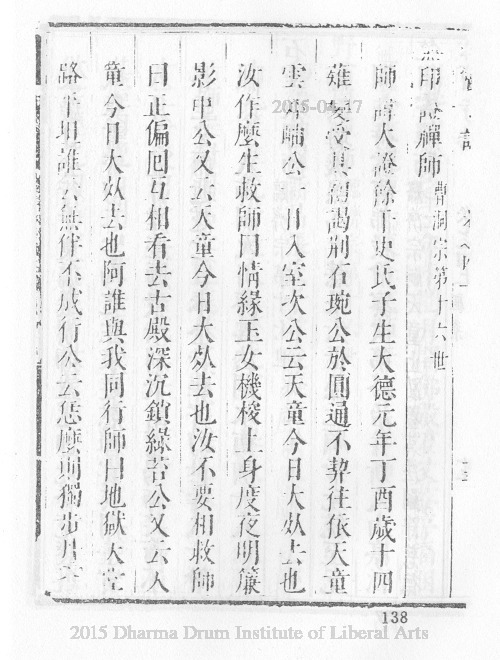 印證禪師 曹洞宗第十六世
師諱大證餘干史氏子生大德元年丁酉歲十四
薙髮受具初謁荊石琬公於圓通不契往依天童
雲外岫公一日入室次公云天童今日大欤去也
汝作麼生救師曰情緣玉女機梭上身度夜明簾
影中公又云天童今日大欤去也汝不要相救師
曰正偏回互相看去古殿深沉鎖綠苔公又云天
童今日大欤去也阿誰與我同行師曰地獄天堂
路平坦誰云無伴不成行公云恁麼則獨步
2015-04-17
138
2015 Dharma Drum Institute of Liberal Arts